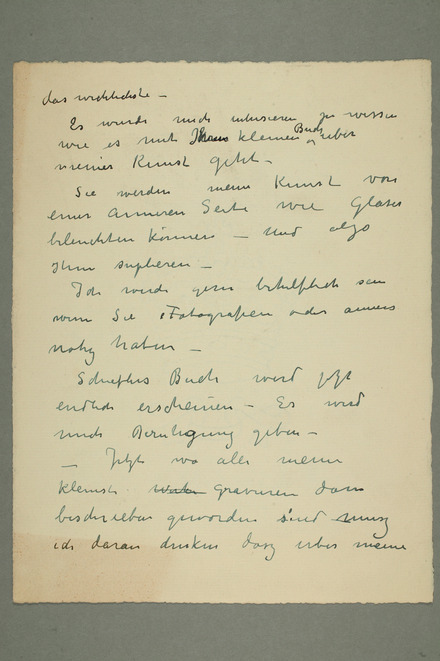 das wichtichste –
Es würde mich interesieren zu wissen
wie es mit Ihren kleinen Buch über
meiner Kunst geht –
Sie werden meine Kunst von
einer anneren Seite wie Glaser
beleuchten können – Und also
Ihm suplieren –
Ich würde gern behilflich sein
wen Sie Fotografien oder anneres
nötig haben –
Schieflers Buch wird jetzt
endlich erscheinen – Es wird
mich Beruhigung geben –
– Jetzt wo alle meine
kleinste Gravuren dan
beschrieben geworden sind musz
ich daran denken dasz über meine